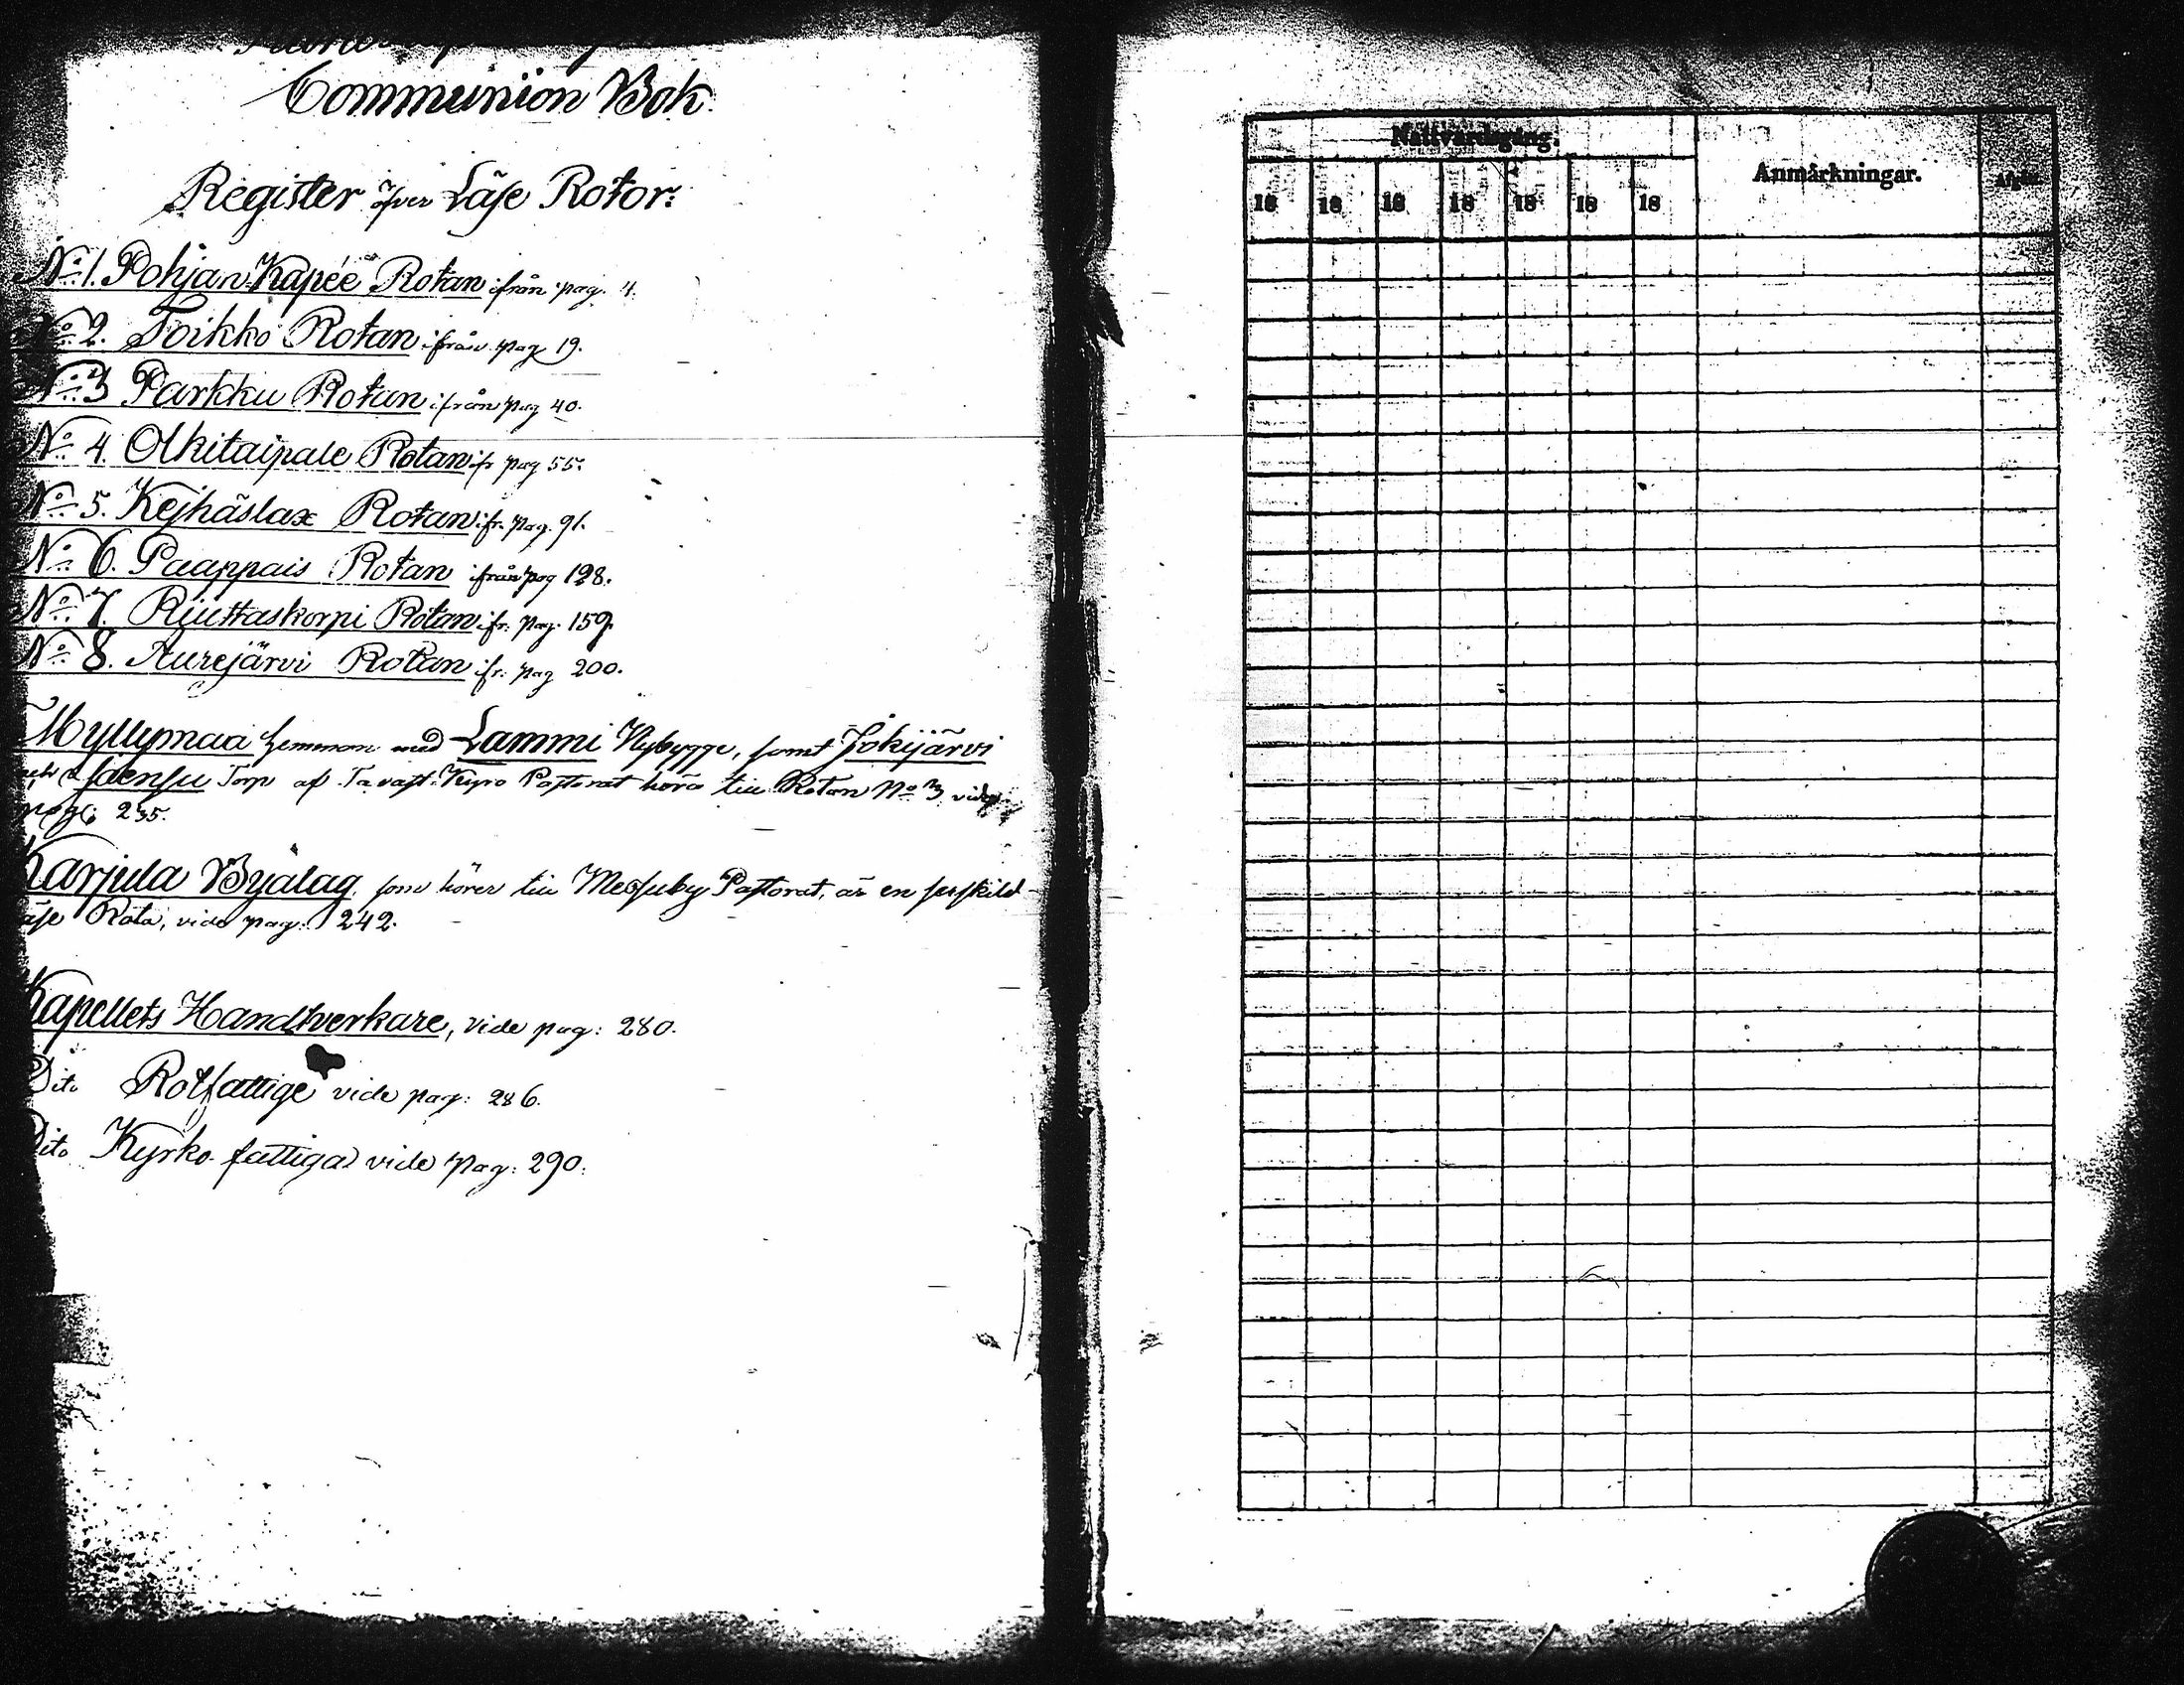 Communion Bok
Register öfver Läse Rotor:
No 1. Pohjan Kapeé Rotan ifrån pag. 4.
No 2. Toikko Rotan ifrån pag 19.
No 3 Parkku Rotan ifrån pag 40.
No 4. Olkitaipale Rotan ifr pag 55.
No 5. Kejhäslax Rotan ifr. pag. 91.
No 6. Paappais Rotan ifrån pag 128.
No 7. Riuttaskorpi Rotan ifr. pag. 159.
No 8. Aurejärvi Rotan ifr. pag 200.
Myllymaa hemman med Lammi Nybygge, samt Jokijärvi
Torp af Tavast-Kyro Pastorat höra till Rotan No 3, vide
pag: 235.
Karjula Byalag, som hörer till Messuby Pastorat, är en serskild
Läse Rota, vide pag: 242.
Kapellets Handtverkare, vide pag: 280.
Dito Rotfattige vide pag: 286.
Dito Kyrko-fattiga vide pag: 290.
Nattvardsgång. Anmärkningar.
18 18 18 18 18 18 18